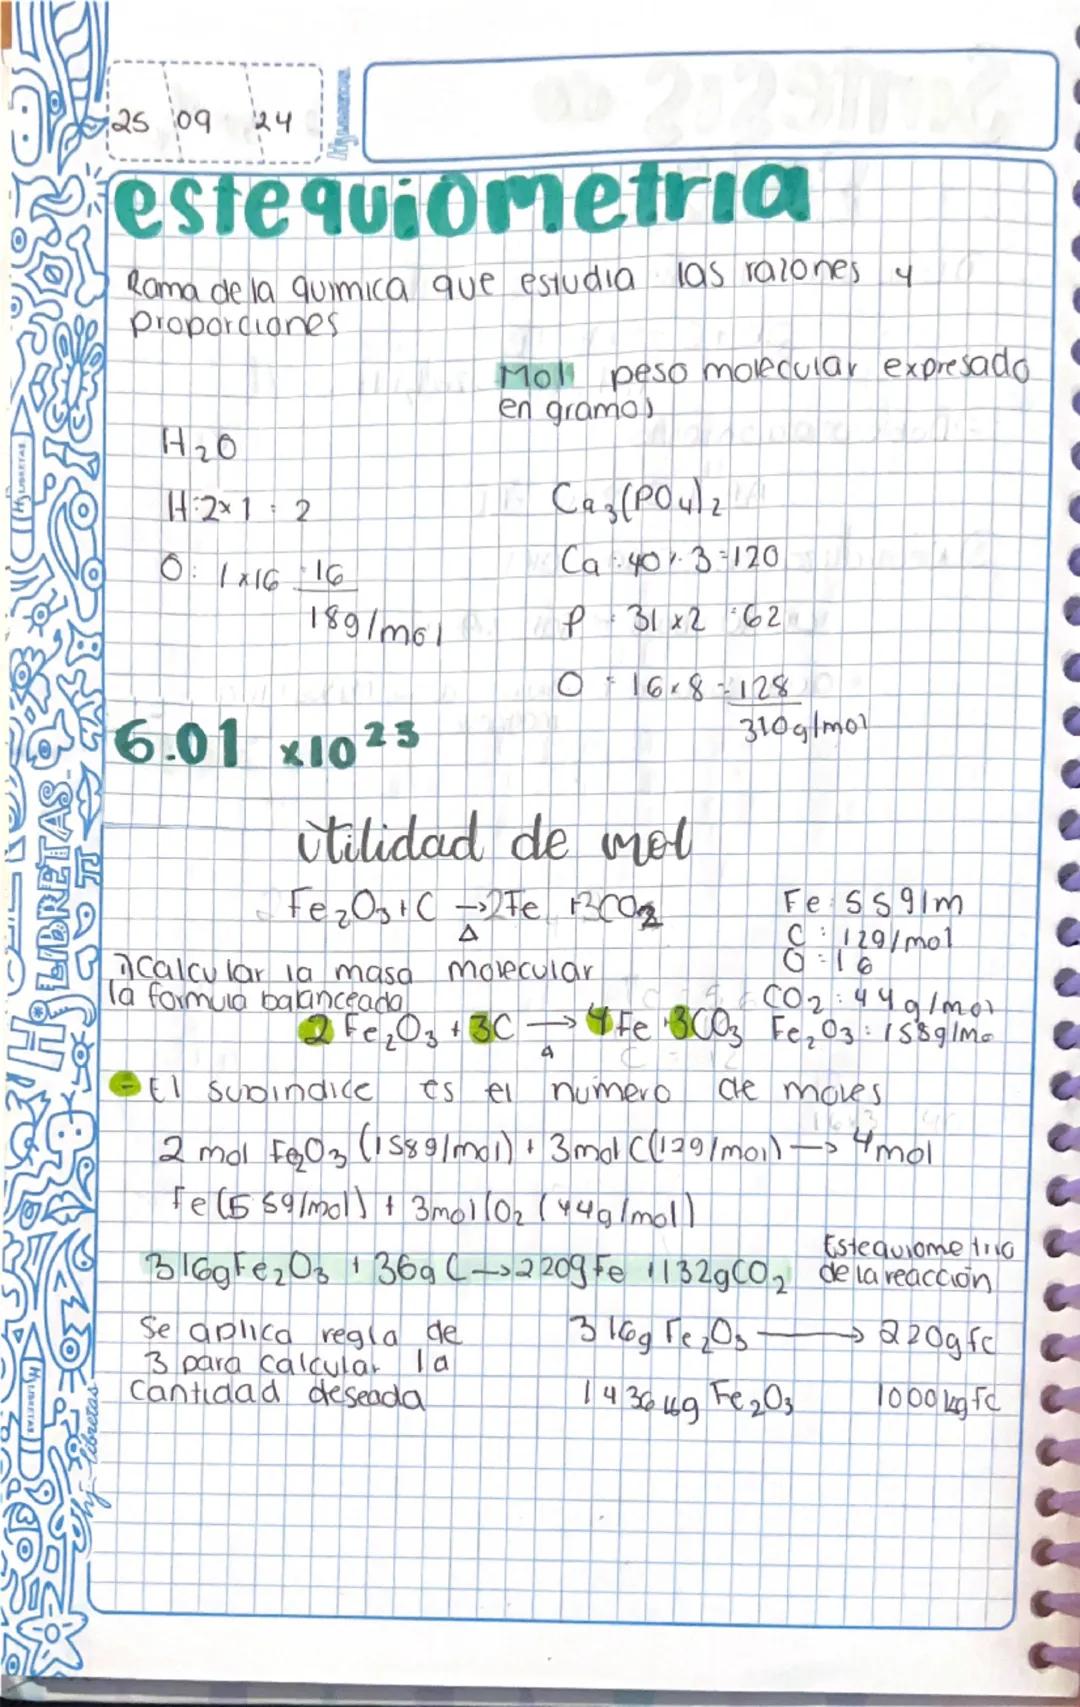 25 09 24
estequiometria
Rama de la quimica que estudia las razones y
proporciones
Mol peso molecular expresado
en gramos
H₂O
H:2×1 : 2
O: 1×16 : 16
18g/mol
Ca₃(PO₄)₂
Ca : 40 × 3 = 120
P : 31 × 2 : 62
O = 16 × 8 = 128
310g/mol
6.01 ×10²³
Utilidad de mol
Fe₂O₃ + C → 2Fe + 3CO₂
Δ
Fe: 55g/m
C : 12g/mol
O = 16
CO₂ : 44g/mol
Fe₂O₃ : 158g/mo
1) Calcular la masa molecular
la formula balanceada
2 Fe₂O₃ + 3C → 4 Fe + 3CO₃
Δ
- El subindice es el numero de moles
2 mol Fe₂O₃ (158g/mol) + 3mol C (12g/mol) → 4mol
Fe (55g/mol) + 3mol CO₂ (44g/mol)
316gFe₂O₃ + 36g C → 220gFe + 132gCO₂
Estequiometria
de la reacción
Se aplica regla de
3 para calcular la
cantidad deseada
316g Fe₂O₃ → 220g fe
1436 kg Fe₂O₃ 1000 kg fe
Hj LIBRETAS
Hj LIBRETAS
Hj LIBRETAS
hj-libretas